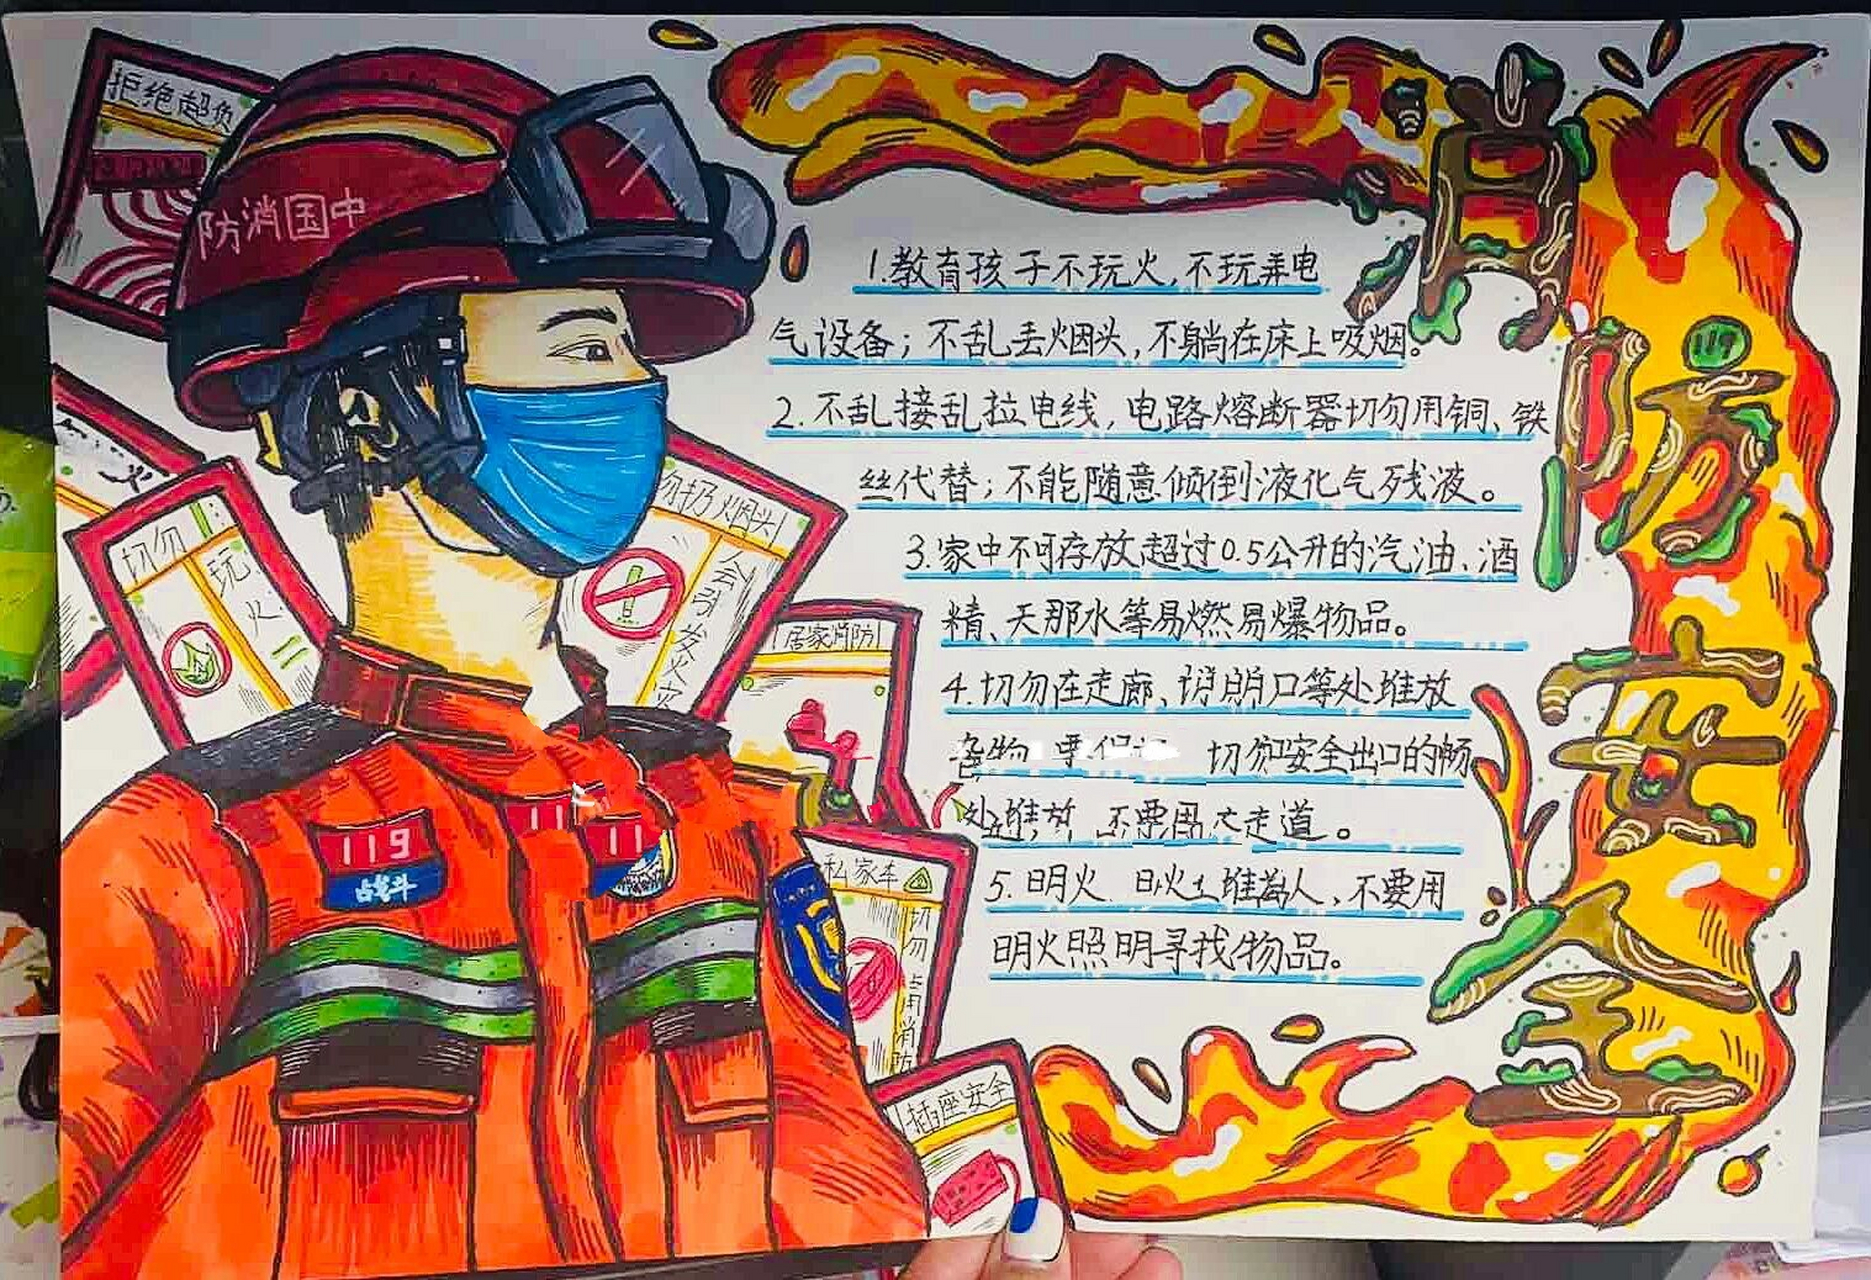 拒绝超负
防消国中
消防安全
1.教育孩子不玩火,不玩弄电
气设备;不乱丢烟头,不躺在床上吸烟。
2.不乱接乱拉电线,电路熔断器切勿用铜、铁
丝代替;不能随意倾倒液化气残液。
3.家中不可存放超过0.5公升的汽油、酒
精、天那水等易燃易爆物品。
4.切勿在走廊、口等处堆放
物 要保 切勿安全出口的畅
处堆放 不要用走道。
5.明火 堆人,不要用
明火照明寻找物品。
切勿
玩火
勿扔烟头
会引发火灾
居家消防
119
战斗
11
11
私家车
切勿占用消防
插座安全